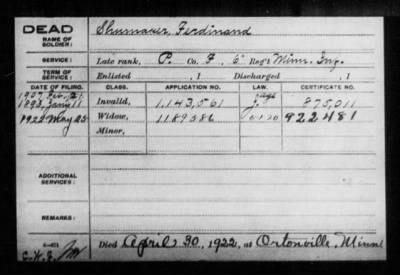 DEAD
NAME OF SOLDIER: Shumaker, Ferdinand
SERVICE: Late rank, P. Co. F, 6" Reg't Minn. Inf.
TERM OF SERVICE: Enlisted , 1 Discharged , 1
DATE OF FILING. CLASS. APPLICATION NO. LAW. CERTIFICATE NO.
1907 Feb. 21
1893, Jany 11 Invalid, 1.143,561 875,011
1922 May 25 Widow, 1189386 922481
Minor,
ADDITIONAL SERVICES:
REMARKS:
Died April 30, 1922, at Ortonville, Minn